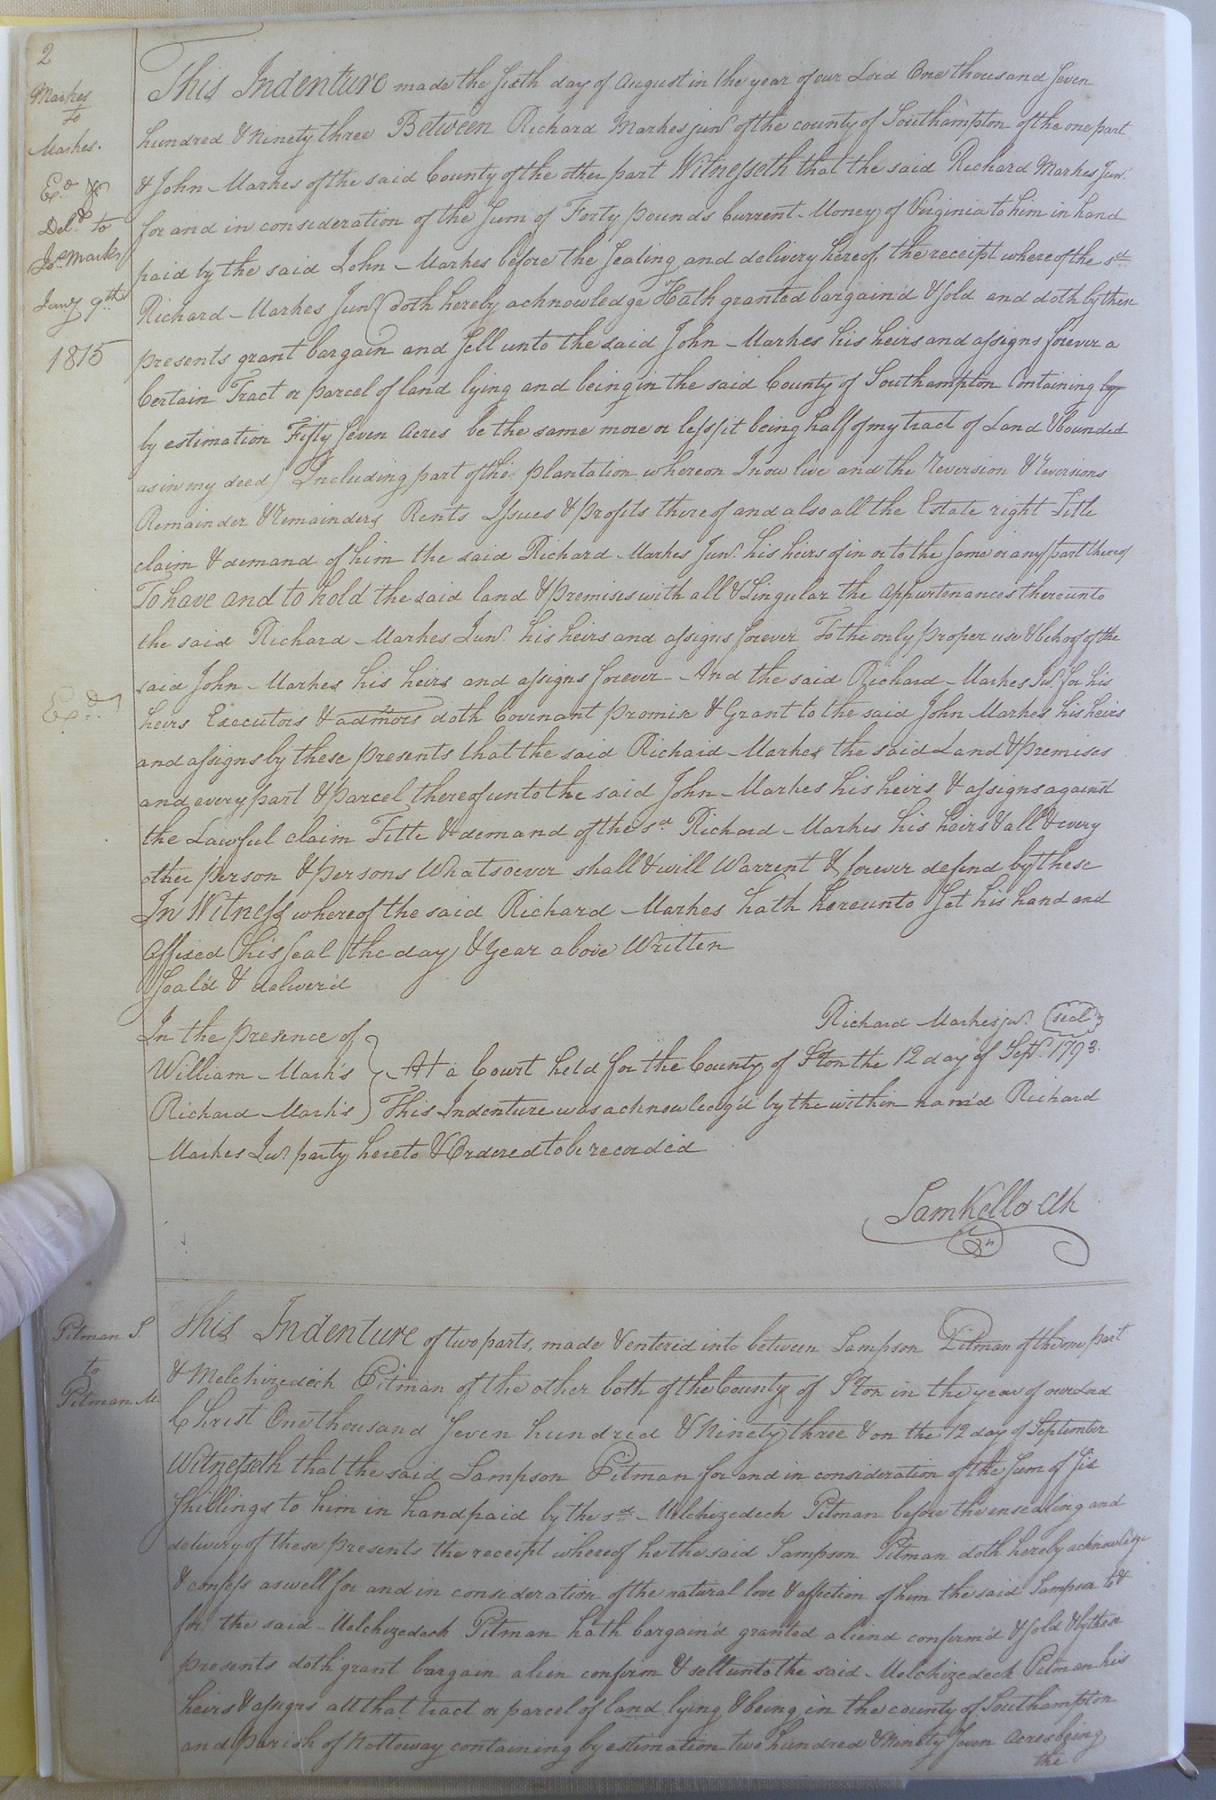 2
Markes
to
Markes.
Ex.d &
Del.d to
Jn.o Marks
Jany 9th
1815
This Indenture made the sixth day of August in the year of our Lord One thousand seven
hundred & Ninety three Between Richard Markes jun.r of the county of Southampton of the one part
& John Markes of the said County of the other part Witnesseth that the said Richard Markes Jun.r
for and in consideration of the sum of Forty pounds Current Money of Virginia to him in hand
paid by the said John Markes before the sealing and delivery hereof the receipt whereof the s.d
Richard Markes Jun.r doth hereby acknowledge Hath granted bargain'd & sold and doth by these
presents grant bargain and sell unto the said John Markes his heirs and assigns forever a
Certain Tract or parcel of land lying and being in the said County of Southampton Containing by
by estimation Fifty seven Acres be the same more or less (it being half of my tract of Land & bounded
as in my deed) Including part of the plantation whereon I now live and the reversion & reversions
Remainder & Remainders Rents Issues & profits thereof and also all the Estate right Title
claim & demand of him the said Richard Markes Jun.r his heirs of in or to the same or any part thereof
To have and to hold the said land & premises with all & Singular the appurtenances thereunto
the said Richard Markes Jun.r his heirs and assigns forever To the only proper use & behoof of the
said John Markes his heirs and assigns forever And the said Richard Markes Ju.r for his
Ex.d
heirs Executors & admors doth Covenant promise & Grant to the said John Markes his heirs
and assigns by these presents that the said Richard Markes the said Land & premises
and every part & parcel thereof unto the said John Markes his heirs & assigns against
the Lawful claim Title & demand of the s.d Richard Markes his heirs & all & every
other person & persons Whatsoever shall & will Warrent & forever defend by these
In Witness whereof the said Richard Markes hath hereunto set his hand and
affixed his seal the day & year above Written
Seal'd & deliver'd
In the presence of
Richard Markes ju.r (seal)
William Mark's
At a Court held for the County of Ston the 12 day of Sept. 1793.
Richard Mark's
This Indenture was acknowledg'd by the within nam'd Richard
Markes Ju.r party hereto & Ordered to be recorded
Sam Kello Clk
Pitman S.
to
Pitman M.
This Indenture of two parts, made & entered into between Sampson Pitman of the one part
& Melchizedeck Pitman of the other both of the County of Ston in the year of our Lord
Christ One thousand seven hundred & Ninety three & on the 12 day of September
Witnesseth that the said Sampson Pitman for and in consideration of the sum of six
shillings to him in hand paid by the s.d Melchizedeck Pitman before the ensealing and
delivery of these presents the receipt whereof he the said Sampson Pitman doth hereby acknowledge
& confess as well for and in consideration of the natural love & affection of him the said Sampson to &
for the said Melchizedeck Pitman hath bargain'd granted aliend confirm'd & sold & by these
presents doth grant bargain alien confirm & sell unto the said Melchizedeck Pitman his
heirs & assigns all that tract or parcel of land lying & being in the county of Southampton
and parish of Nottoway containing by estimation two hundred & Ninety seven acres being
the